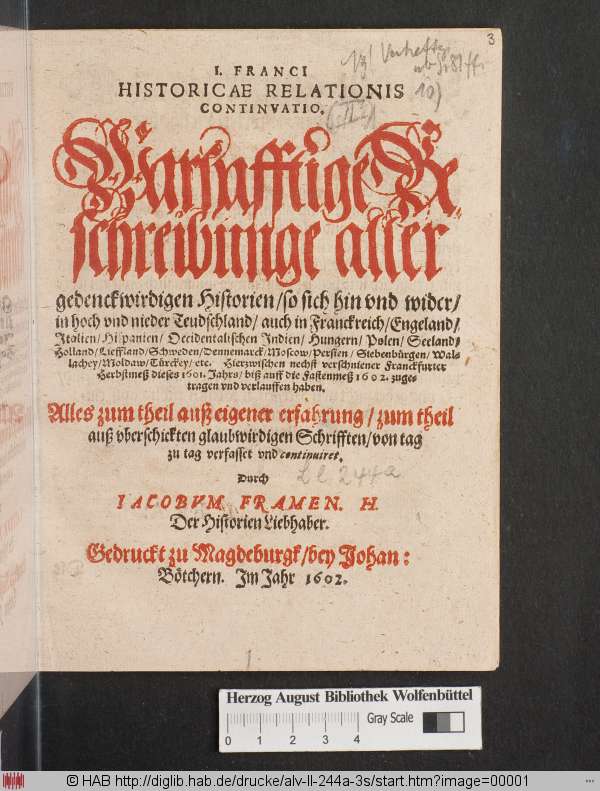 3
I. FRANCI
HISTORICAE RELATIONIS
CONTINVATIO.
Warhafftige Be-
schreibunge aller
gedenckwirdigen Historien / so sich hin vnd wider /
in hoch vnd nieder Teudschland / auch in Franckreich / Engeland /
Italien / Hispanien / Occidentalischen Indien / Hungern / Polen / Seeland /
Holland / Lieffland / Schweden / Dennemarck / Moscow / Persien / Siebenbürgen / Wal-
lachey / Moldaw / Türckey / etc. Hierzwischen nechst verschiener Franckfurter
Herbstmeß dieses 1601. Jahrs / biß auff die Fastenmeß 1602. zuge-
tragen vnd verlauffen haben.
Alles zum theil auß eigener erfahrung / zum theil
auß vberschickten glaubwirdigen Schrifften / von tag
zu tag verfasset vnd continuiret.
Durch
IACOBVM FRAMEN. H.
Der Historien Liebhaber.
Gedruckt zu Magdeburgk / bey Johan:
Bötchern. Im Jahr 1602.
Herzog August Bibliothek Wolfenbüttel
0 1 2 3 4 Gray Scale
© HAB http://diglib.hab.de/drucke/alv-ll-244a-3s/start.htm?image=00001